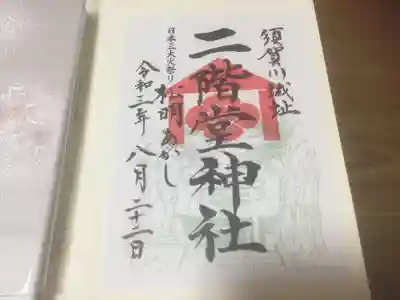 須賀川城址
二階堂神社
日本三大火祭り
松明あかし
令和三年 八月二十二日